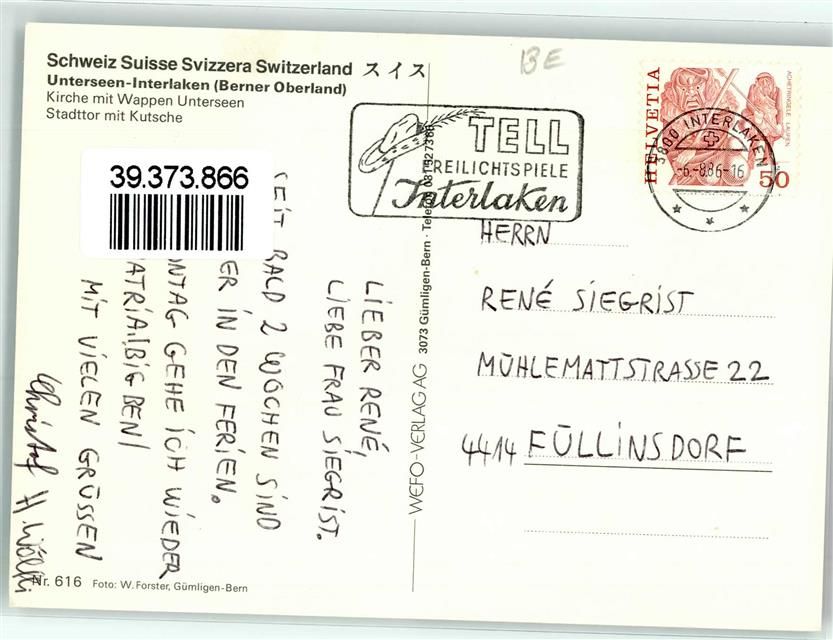 Schweiz Suisse Svizzera Switzerland スイス
Unterseen-Interlaken (Berner Oberland)
Kirche mit Wappen Unterseen
Stadttor mit Kutsche
BE
39.373.866
TELL
REILICHTSPIELE
Interlaken
HELVETIA
ACHETRINGELE LAUPEN
50
3800 INTERLAKEN
-6.-8.86-16
LIEBER RENÉ,
LIEBE FRAU SIEGRIST.
EIT BALD 2 WOCHEN SIND
ER IN DEN FERIEN.
NTAG GEHE ICH WIEDER
ATRIA!(BIG BEN)
MIT VIELEN GRÜSSEN
Christof H. Wölfli
WEFO-VERLAG AG 3073 Gümligen-Bern · Telefon 031 527388
HERRN
RENÉ SIEGRIST
MÜHLEMATTSTRASSE 22
4414 FÜLLINSDORF
Nr. 616 Foto: W. Forster, Gümligen-Bern